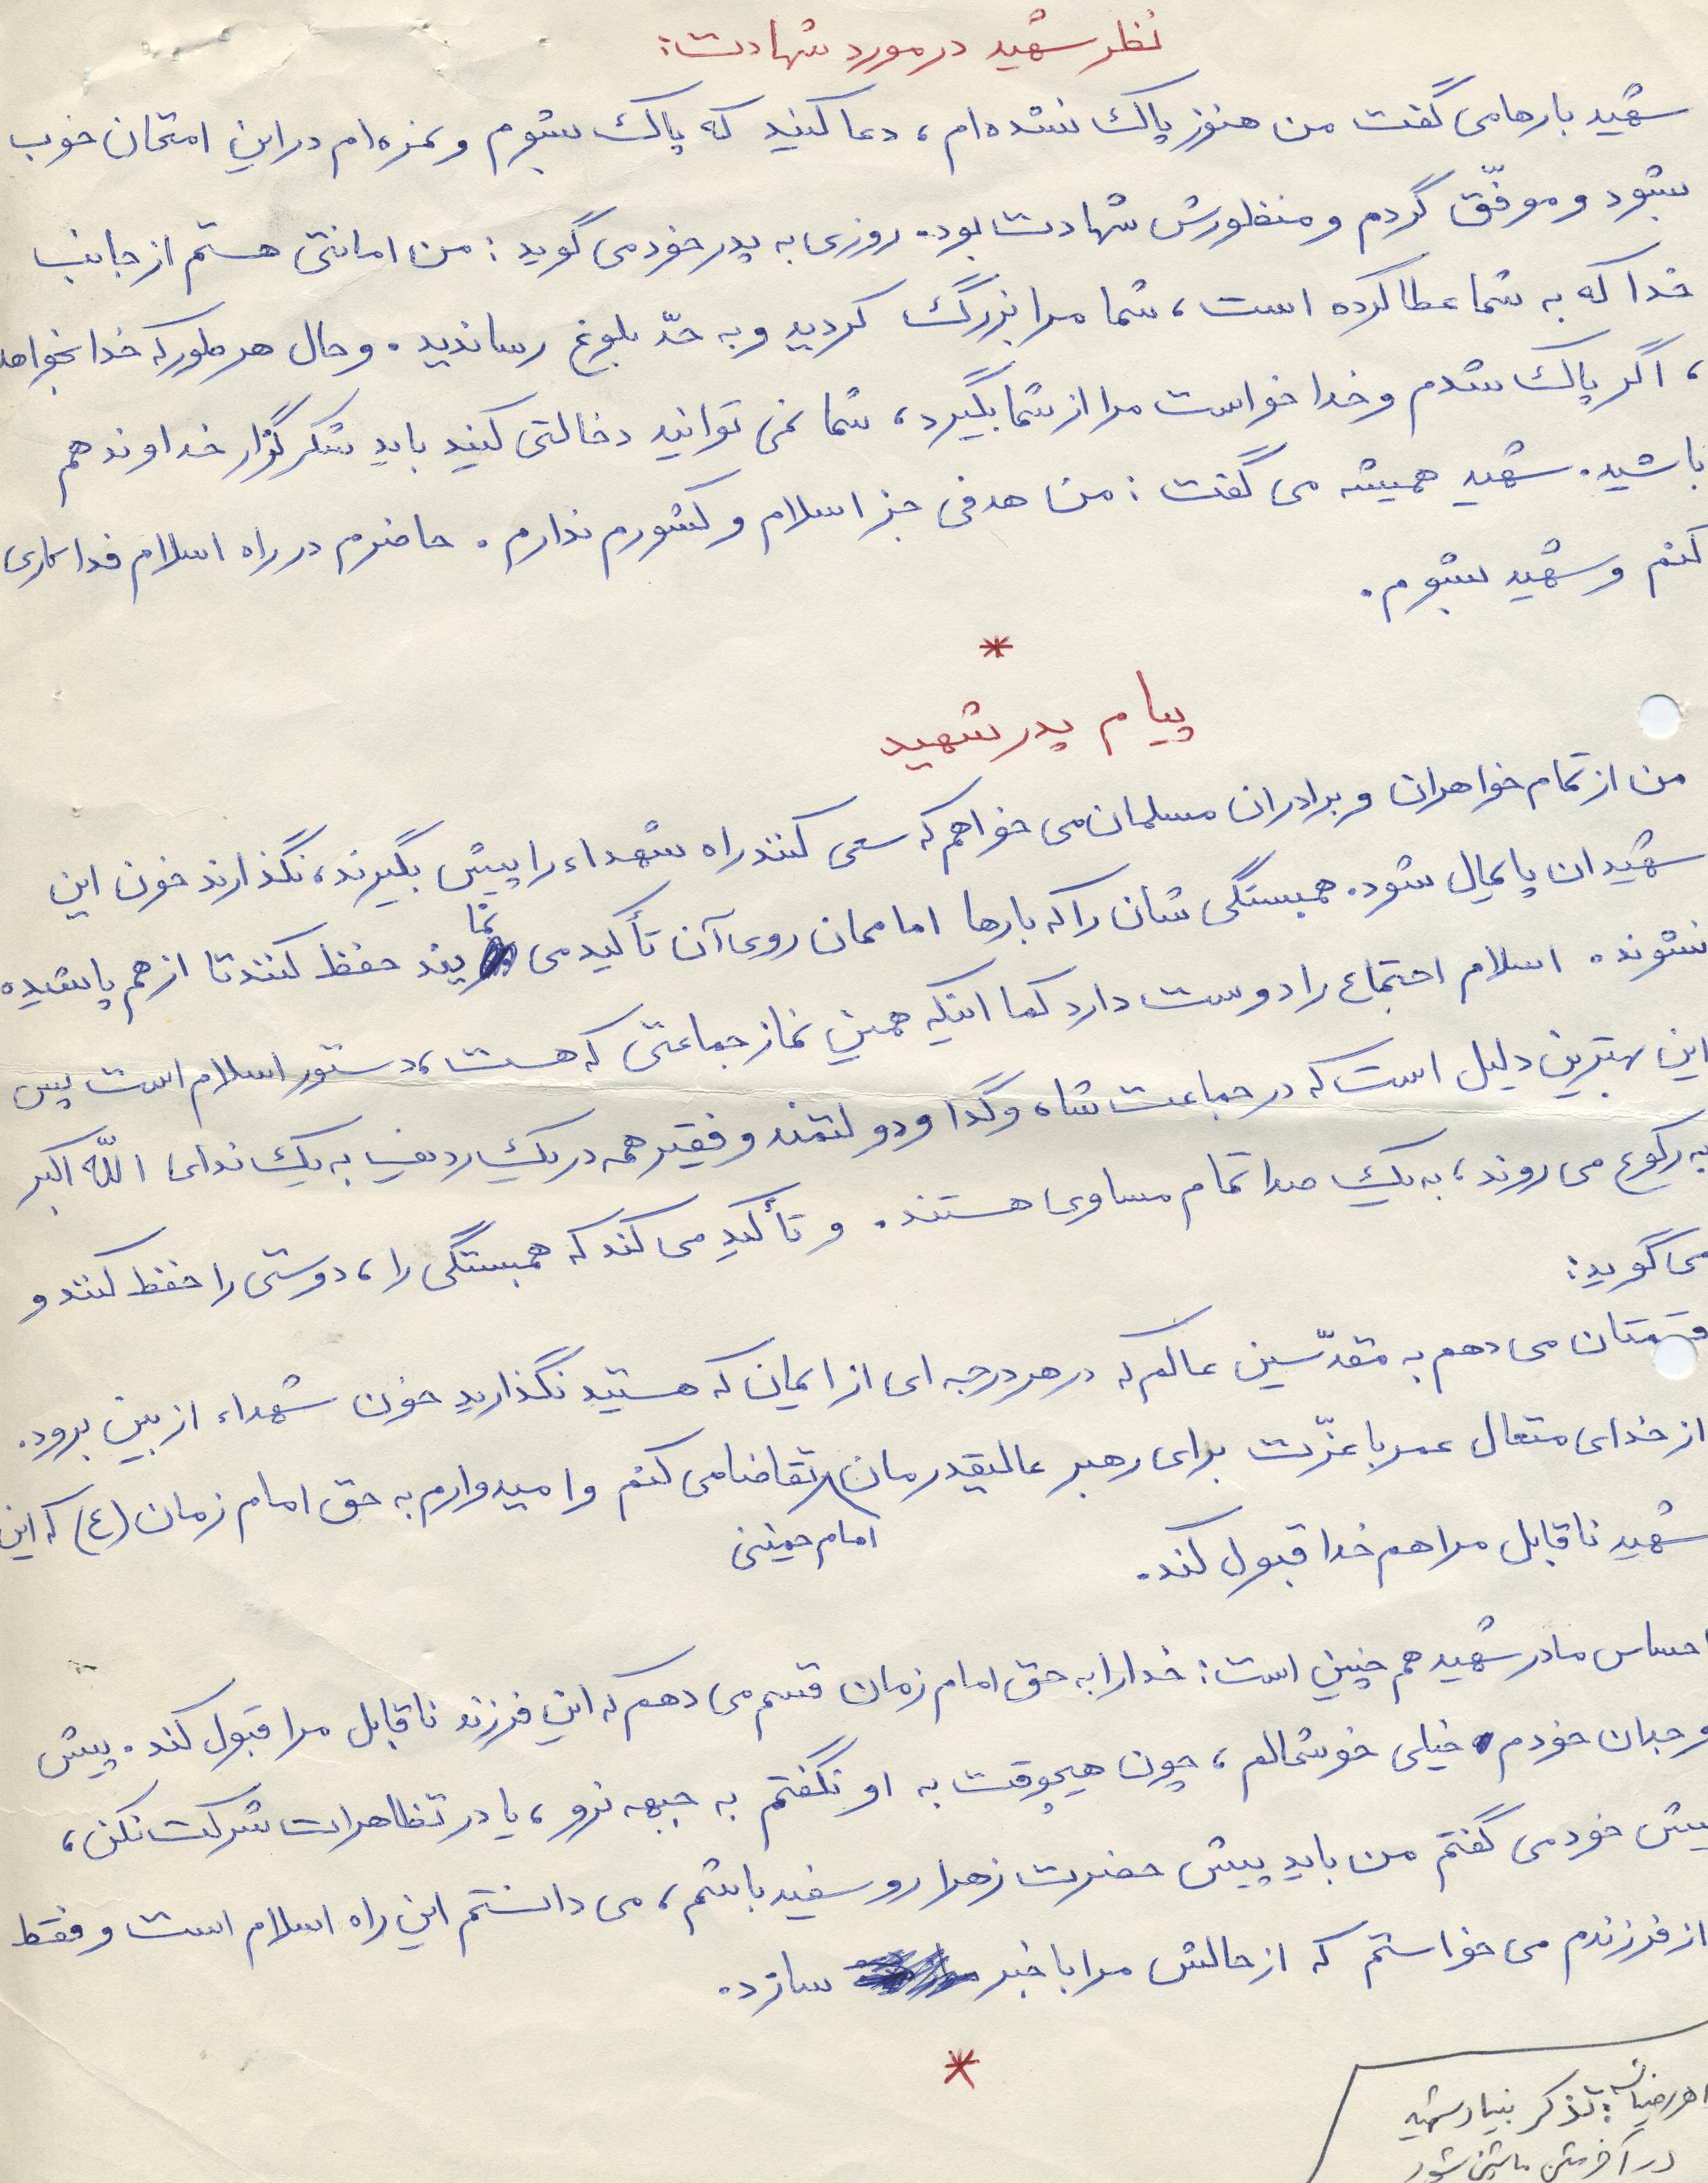 نظر شهید در مورد شهادت:
شهید بارها می گفت من هنوز پاک نشده ام، دعا کنید که پاک بشوم و نمره ام در این امتحان خوب
بشود و موفّق گردم و منظورش شهادت بود. روزی به پدر خود می گوید: من امانتی هستم از جانب
خدا که به شما عطا کرده است، شما مرا بزرگ کردید و به حدّ بلوغ رساندید. و حال هر طور که خدا بخواهد
، اگر پاک شدم و خدا خواست مرا از شما بگیرد، شما نمی توانید دخالتی کنید باید شکرگزار خداوند هم
باشید. شهید همیشه می گفت: من هدفی جز اسلام و کشورم ندارم. حاضرم در راه اسلام فداکاری
کنم و شهید بشوم.
*
پیام پدر شهید
من از تمام خواهران و برادران مسلمان می خواهم که سعی کنند راه شهداء را پیش بگیرند، نگذارند خون این
شهیدان پایمال شود. همبستگی شان را که بارها اماممان روی آن تأکید می نمایند حفظ کنند تا از هم پاشیده
نشوند. اسلام اجتماع را دوست دارد کما اینکه همین نماز جماعتی که هست، دستور اسلام است پس
این بهترین دلیل است که در جماعت شاه و گدا و دولتمند و فقیر همه در یک ردیف به یک ندای اللّه اکبر
به رکوع می روند، به یک صدا تمام مساوی هستند. و تأکید می کند که همبستگی را، دوستی را حفظ کنند و
می گوید:
قسمتان می دهم به مقدّسین عالم که در هر درجه ای از ایمان که هستید نگذارید خون شهداء از بین برود.
از خدای متعال عمر با عزّت برای رهبر عالیقدرمان امام خمینی تقاضا می کنم و امیدوارم به حق امام زمان (ع) که این
شهید ناقابل مرا هم خدا قبول کند.
احساس مادر شهید هم چنین است: خدا را به حق امام زمان قسم می دهم که این فرزند ناقابل مرا قبول کند. پیش
وجدان خودم خیلی خوشحالم، چون هیچوقت به او نگفتم به جبهه نرو، یا در تظاهرات شرکت نکن،
پیش خود می گفتم من باید پیش حضرت زهرا روسفید باشم، می دانستم این راه اسلام است و فقط
از فرزندم می خواستم که از حالش مرا با خبر سازد.
*
تذکر بنیاد شهید
در آخر متن ماشین شود